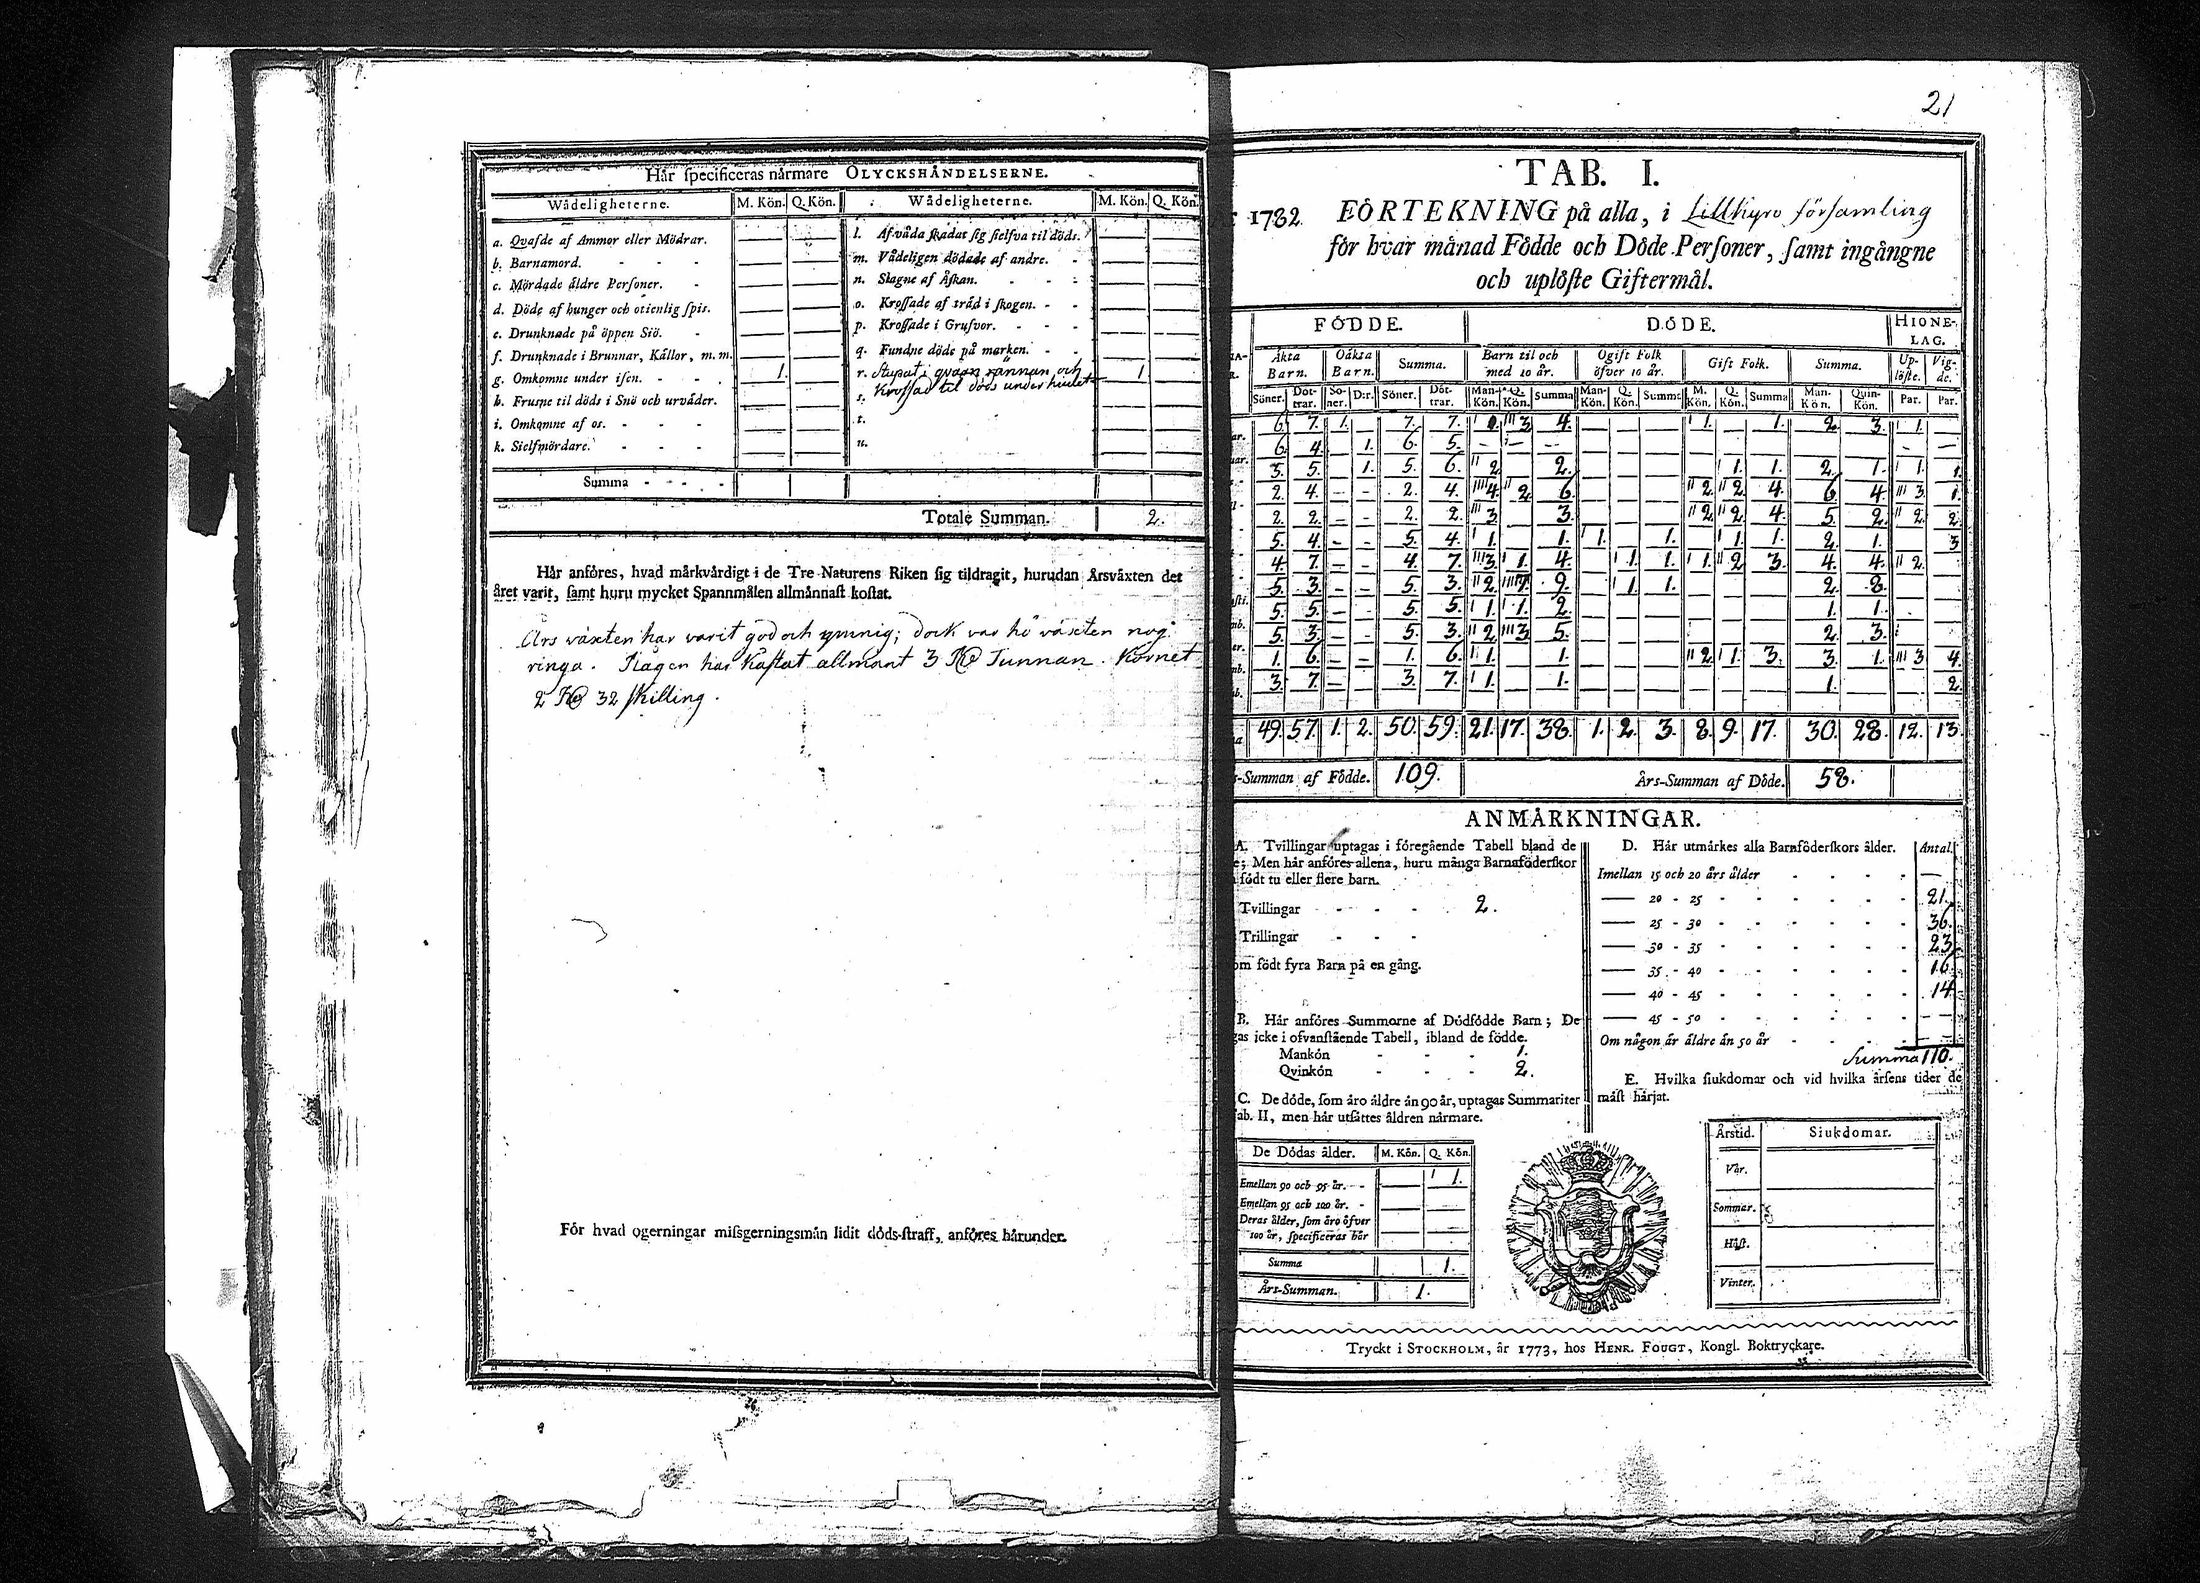 Hår specificeras nårmare OLYCKSHÅNDELSERNE.
Wådeligheterne. M. Kön. Q. Kön. Wådeligheterne. M. Kön. Q. Kön.
a. Qvafde af Ammor eller Mödrar. — —
b. Barnamord. — —
c. Mördade åldre Personer. — —
d. Döde af hunger och otienlig spis. — —
e. Drunknade på öppen Siö. — —
f. Drunknade i Brunnar, Källor, m. m. — —
g. Omkomne under isen. 1. —
h. Frusne til döds i Snö och urvåder. — —
i. Omkomne af os. — —
k. Sielfmördare. — —
l. Af våda skadat sig sielfva til döds. — —
m. Vådeligen dödade af andre. — —
n. Slagne af Åskan. — —
o. Krossade af tråd i skogen. — —
p. Krossade i Grufvor. — —
q. Fundne döde på marken. — —
r. stupat i qvarn rännan och 1
s. Krossad til döds under hiulet
t.
u.
Summa
Totale Summan. 2.
Hår anföres, hvad mårkvårdigt i de Tre Naturens Riken sig tildragit, hurudan Årsvåxten det
året varit, samt huru mycket Spannmålen allmånnast kostat.
Års växten har varit god och ymnig; dock var hö växten nog
ringa. Rågen har Kåstat allmänt 3 Rd Tunnan. Kornet
2 Rd 32 skilling.
För hvad ogerningar missgerningsmån lidit döds-straff, anföres hårunder.
21
TAB. I.
1782 FÖRTEKNING på alla, i Lillkyro församling
för hvar månad Födde och Döde Personer, samt ingångne
och uplöste Giftermål.
FÖDDE. DÖDE. HIONE-LAG.
Åkta Barn. Oåkta Barn. Summa. Barn til och med 10 år. Ogift Folk öfver 10 år. Gift Folk. Summa. Up-löste. Vig-de.
Söner. Döt-trar. Sö-ner. D:r. Söner. Döt-trar. Man-Kön. Q. Kön. Summa Man-Kön. Q. Kön. Summa M. Kön. Q. Kön. Summa Man-Kön. Quin-Kön. Par. Par.
6. 7. 1. 7. 7. 1. 3. 4. — — — 1. 1. 2. 3. 1.
6. 4. 1. 6. 5. — — — — — —
5. 5. 1. 5. 6. 2. 2. — — — 1. 1. 2. 1. 1. 1.
2. 4. — — 2. 4. 4. 2. 6. — — — 2. 2. 4. 6. 4. 3. 1.
2. 2. — — 2. 2. 3. 3. — — — 2. 2. 4. 5. 2. 2. 2.
5. 4. — — 5. 4. 1. 1. 1. 1. 1. 1. 2. 1. 3
4. 7. — — 4. 7. 3. 1. 4. 1. 1. 1. 2. 3. 4. 4. 2.
5. 3. — — 5. 3. 2. 7. 9. 1. 1. 2. 8.
5. 5. — — 5. 5. 1. 1. 2. 1. 1.
5. 3. — — 5. 3. 2. 3. 5. 2. 3.
1. 6. — — 1. 6. 1. 1. 2. 1. 3. 3. 1. 3. 4.
3. 7. — 3. 7. 1. 1. 1. 2.
49. 57. 1. 2. 50. 59. 21. 17. 38. 1. 2. 3. 8. 9. 17. 30. 28. 12. 13.
-Summan af Födde. 109. Års-Summan af Döde. 58.
ANMÅRKNINGAR.
A. Tvillingar uptagas i föregående Tabell bland de
e; Men hår anföres allena, huru många Barnaföderskor
födt tu eller flere barn.
Tvillingar 2.
Trillingar
om födt fyra Barn på en gång.
B. Hår anföres Summorne af Dödfödde Barn; De
gas icke i ofvanstående Tabell, ibland de födde.
Mankön 1.
Qvinkön 2.
C. De döde, som åro åldre ån 90 år, uptagas Summariter
ab. II, men hår utsåttes åldren nårmare.
De Dödas ålder. M. Kön. Q. Kön.
Emellan 90 och 95 år. — 1.
Emellan 95 och 100 år. — —
Deras ålder, som åro öfver
100 år, specificeras hår
Summa 1.
Års-Summan. 1.
D. Hår utmårkes alla Barnföderskors ålder. Antal.
Imellan 15 och 20 års ålder —
— 20 - 25 21.
— 25 - 30 36.
— 30 - 35 23.
— 35 - 40 16.
— 40 - 45 14.
— 45 - 50 —
Om någon år åldre ån 50 år —
Summa 110.
E. Hvilka siukdomar och vid hvilka årsens tider de
måst hårjat.
Årstid. Siukdomar.
Vår.
Sommar.
Höst.
Vinter.
Tryckt i STOCKHOLM, år 1773, hos HENR. FOUGT, Kongl. Boktryckare.